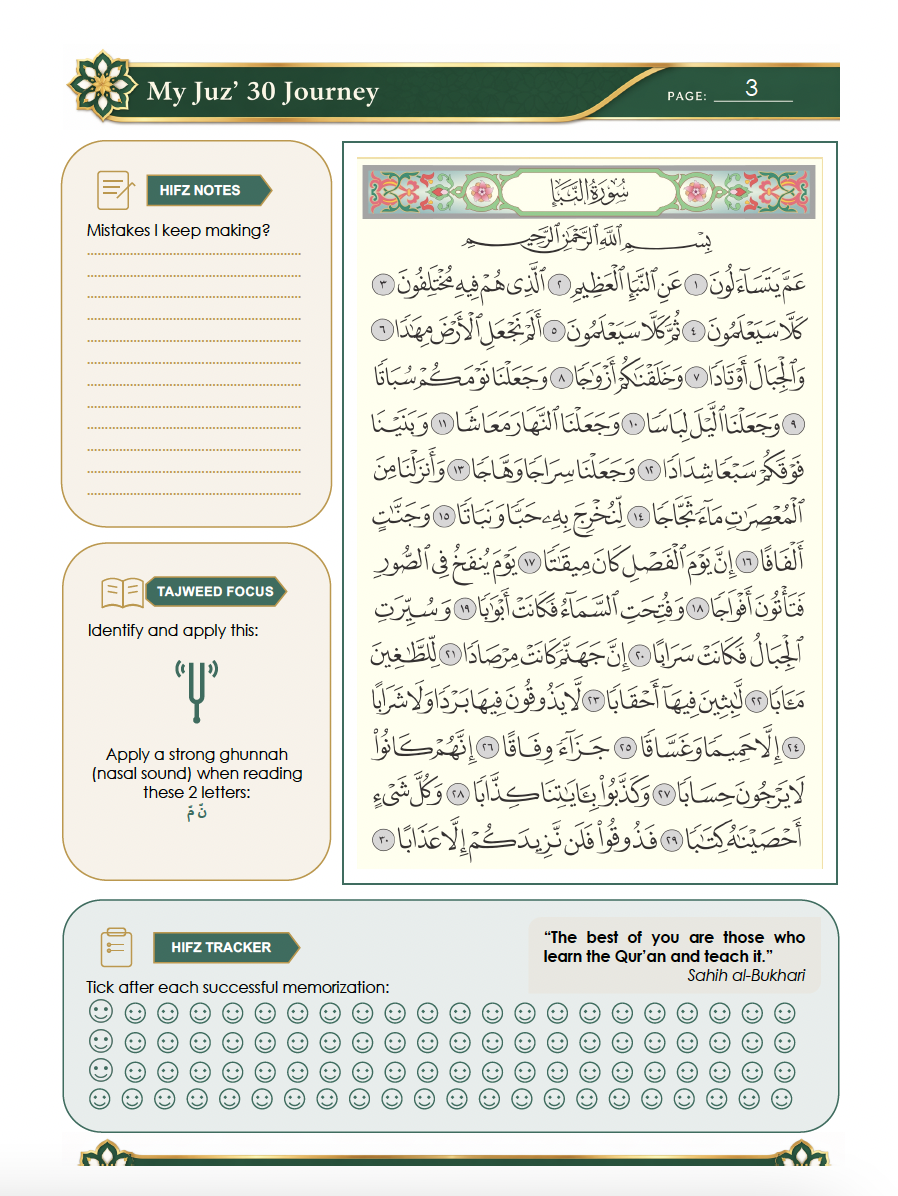 My Juz’ 30 Journey
PAGE: 3
HIFZ NOTES
Mistakes I keep making?
سُورَةُ النَّبَإِ
بِسْمِ اللَّهِ الرَّحْمَٰنِ الرَّحِيمِ
عَمَّ يَتَسَآءَلُونَ ١ عَنِ ٱلنَّبَإِ ٱلْعَظِيمِ ٢ ٱلَّذِى هُمْ فِيهِ مُخْتَلِفُونَ ٣
كَلَّا سَيَعْلَمُونَ ٤ ثُمَّ كَلَّا سَيَعْلَمُونَ ٥ أَلَمْ نَجْعَلِ ٱلْأَرْضَ مِهَٰدًا ٦
وَٱلْجِبَالَ أَوْتَادًا ٧ وَخَلَقْنَٰكُمْ أَزْوَٰجًا ٨ وَجَعَلْنَا نَوْمَكُمْ سُبَاتًا
٩ وَجَعَلْنَا ٱلَّيْلَ لِبَاسًا ١٠ وَجَعَلْنَا ٱلنَّهَارَ مَعَاشًا ١١ وَبَنَيْنَا
فَوْقَكُمْ سَبْعًا شِدَادًا ١٢ وَجَعَلْنَا سِرَاجًا وَهَّاجًا ١٣ وَأَنزَلْنَا مِنَ
ٱلْمُعْصِرَٰتِ مَآءً ثَجَّاجًا ١٤ لِّنُخْرِجَ بِهِۦ حَبًّا وَنَبَاتًا ١٥ وَجَنَّٰتٍ
أَلْفَافًا ١٦ إِنَّ يَوْمَ ٱلْفَصْلِ كَانَ مِيقَٰتًا ١٧ يَوْمَ يُنفَخُ فِى ٱلصُّورِ
فَتَأْتُونَ أَفْوَاجًا ١٨ وَفُتِحَتِ ٱلسَّمَآءُ فَكَانَتْ أَبْوَٰبًا ١٩ وَسُيِّرَتِ
ٱلْجِبَالُ فَكَانَتْ سَرَابًا ٢٠ إِنَّ جَهَنَّمَ كَانَتْ مِرْصَادًا ٢١ لِّلطَّٰغِينَ
مَـَٔابًا ٢٢ لَّٰبِثِينَ فِيهَآ أَحْقَابًا ٢٣ لَّا يَذُوقُونَ فِيهَا بَرْدًا وَلَا شَرَابًا
٢٤ إِلَّا حَمِيمًا وَغَسَّاقًا ٢٥ جَزَآءً وِفَاقًا ٢٦ إِنَّهُمْ كَانُوا۟
لَا يَرْجُونَ حِسَابًا ٢٧ وَكَذَّبُوا۟ بِـَٔايَٰتِنَا كِذَّابًا ٢٨ وَكُلَّ شَىْءٍ
أَحْصَيْنَٰهُ كِتَٰبًا ٢٩ فَذُوقُوا۟ فَلَن نَّزِيدَكُمْ إِلَّا عَذَابًا ٣٠
TAJWEED FOCUS
Identify and apply this:
Apply a strong ghunnah
(nasal sound) when reading
these 2 letters:
نّ مّ
HIFZ TRACKER
“The best of you are those who
learn the Qur’an and teach it.”
Sahih al-Bukhari
Tick after each successful memorization: